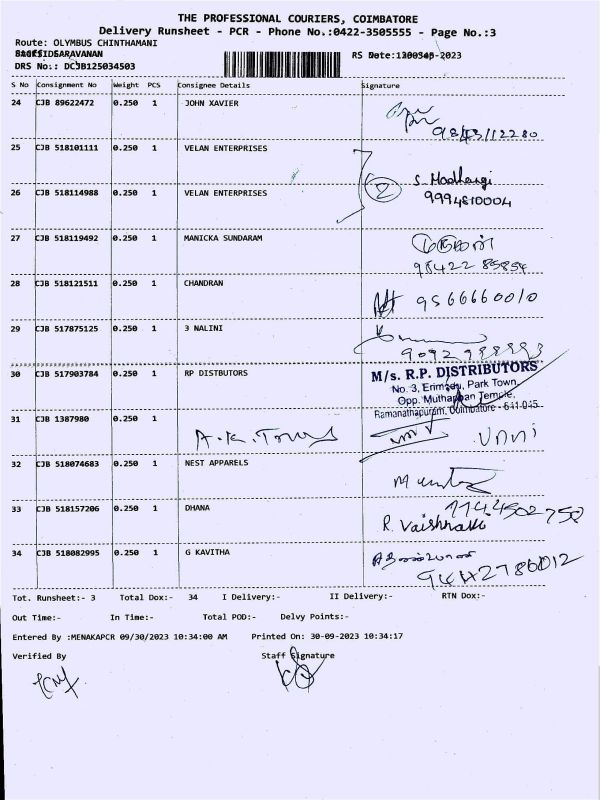 THE PROFESSIONAL COURIERS, COIMBATORE
Delivery Runsheet - PCR - Phone No.:0422-3505555 - Page No.:3
Route: OLYMBUS CHINTHAMANI
DRS No.: DCJB125034503
S No Consignment No Weight PCS Consignee Details Signature
24 CJB 89622472 0.250 1 JOHN XAVIER
25 CJB 518101111 0.250 1 VELAN ENTERPRISES
26 CJB 518114988 0.250 1 VELAN ENTERPRISES
2
9994810004
27 CJB 518119492 0.250 1 MANICKA SUNDARAM
98422 85854
28 CJB 518121511 0.250 1 CHANDRAN
9566660010
29 CJB 517875125 0.250 1 3 NALINI
30 CJB 517903784 0.250 1 RP DISTBUTORS
M/s. R.P. DISTRIBUTORS
No. 3, Park Town,
Opp. Temple,
Ramanathapuram, Coimbatore - 641 045
31 CJB 1387980 0.250 1
A.K. Towers
32 CJB 518074683 0.250 1 NEST APPARELS
33 CJB 518157206 0.250 1 DHANA
R. Vaishnavi
34 CJB 518082995 0.250 1 G KAVITHA
Tot. Runsheet:- 3 Total Dox:- 34 I Delivery:- II Delivery:- RTN Dox:-
Out Time:- In Time:- Total POD:- Delvy Points:-
Entered By :MENAKAPCR 09/30/2023 10:34:00 AM Printed On: 30-09-2023 10:34:17
Verified By Staff Signature